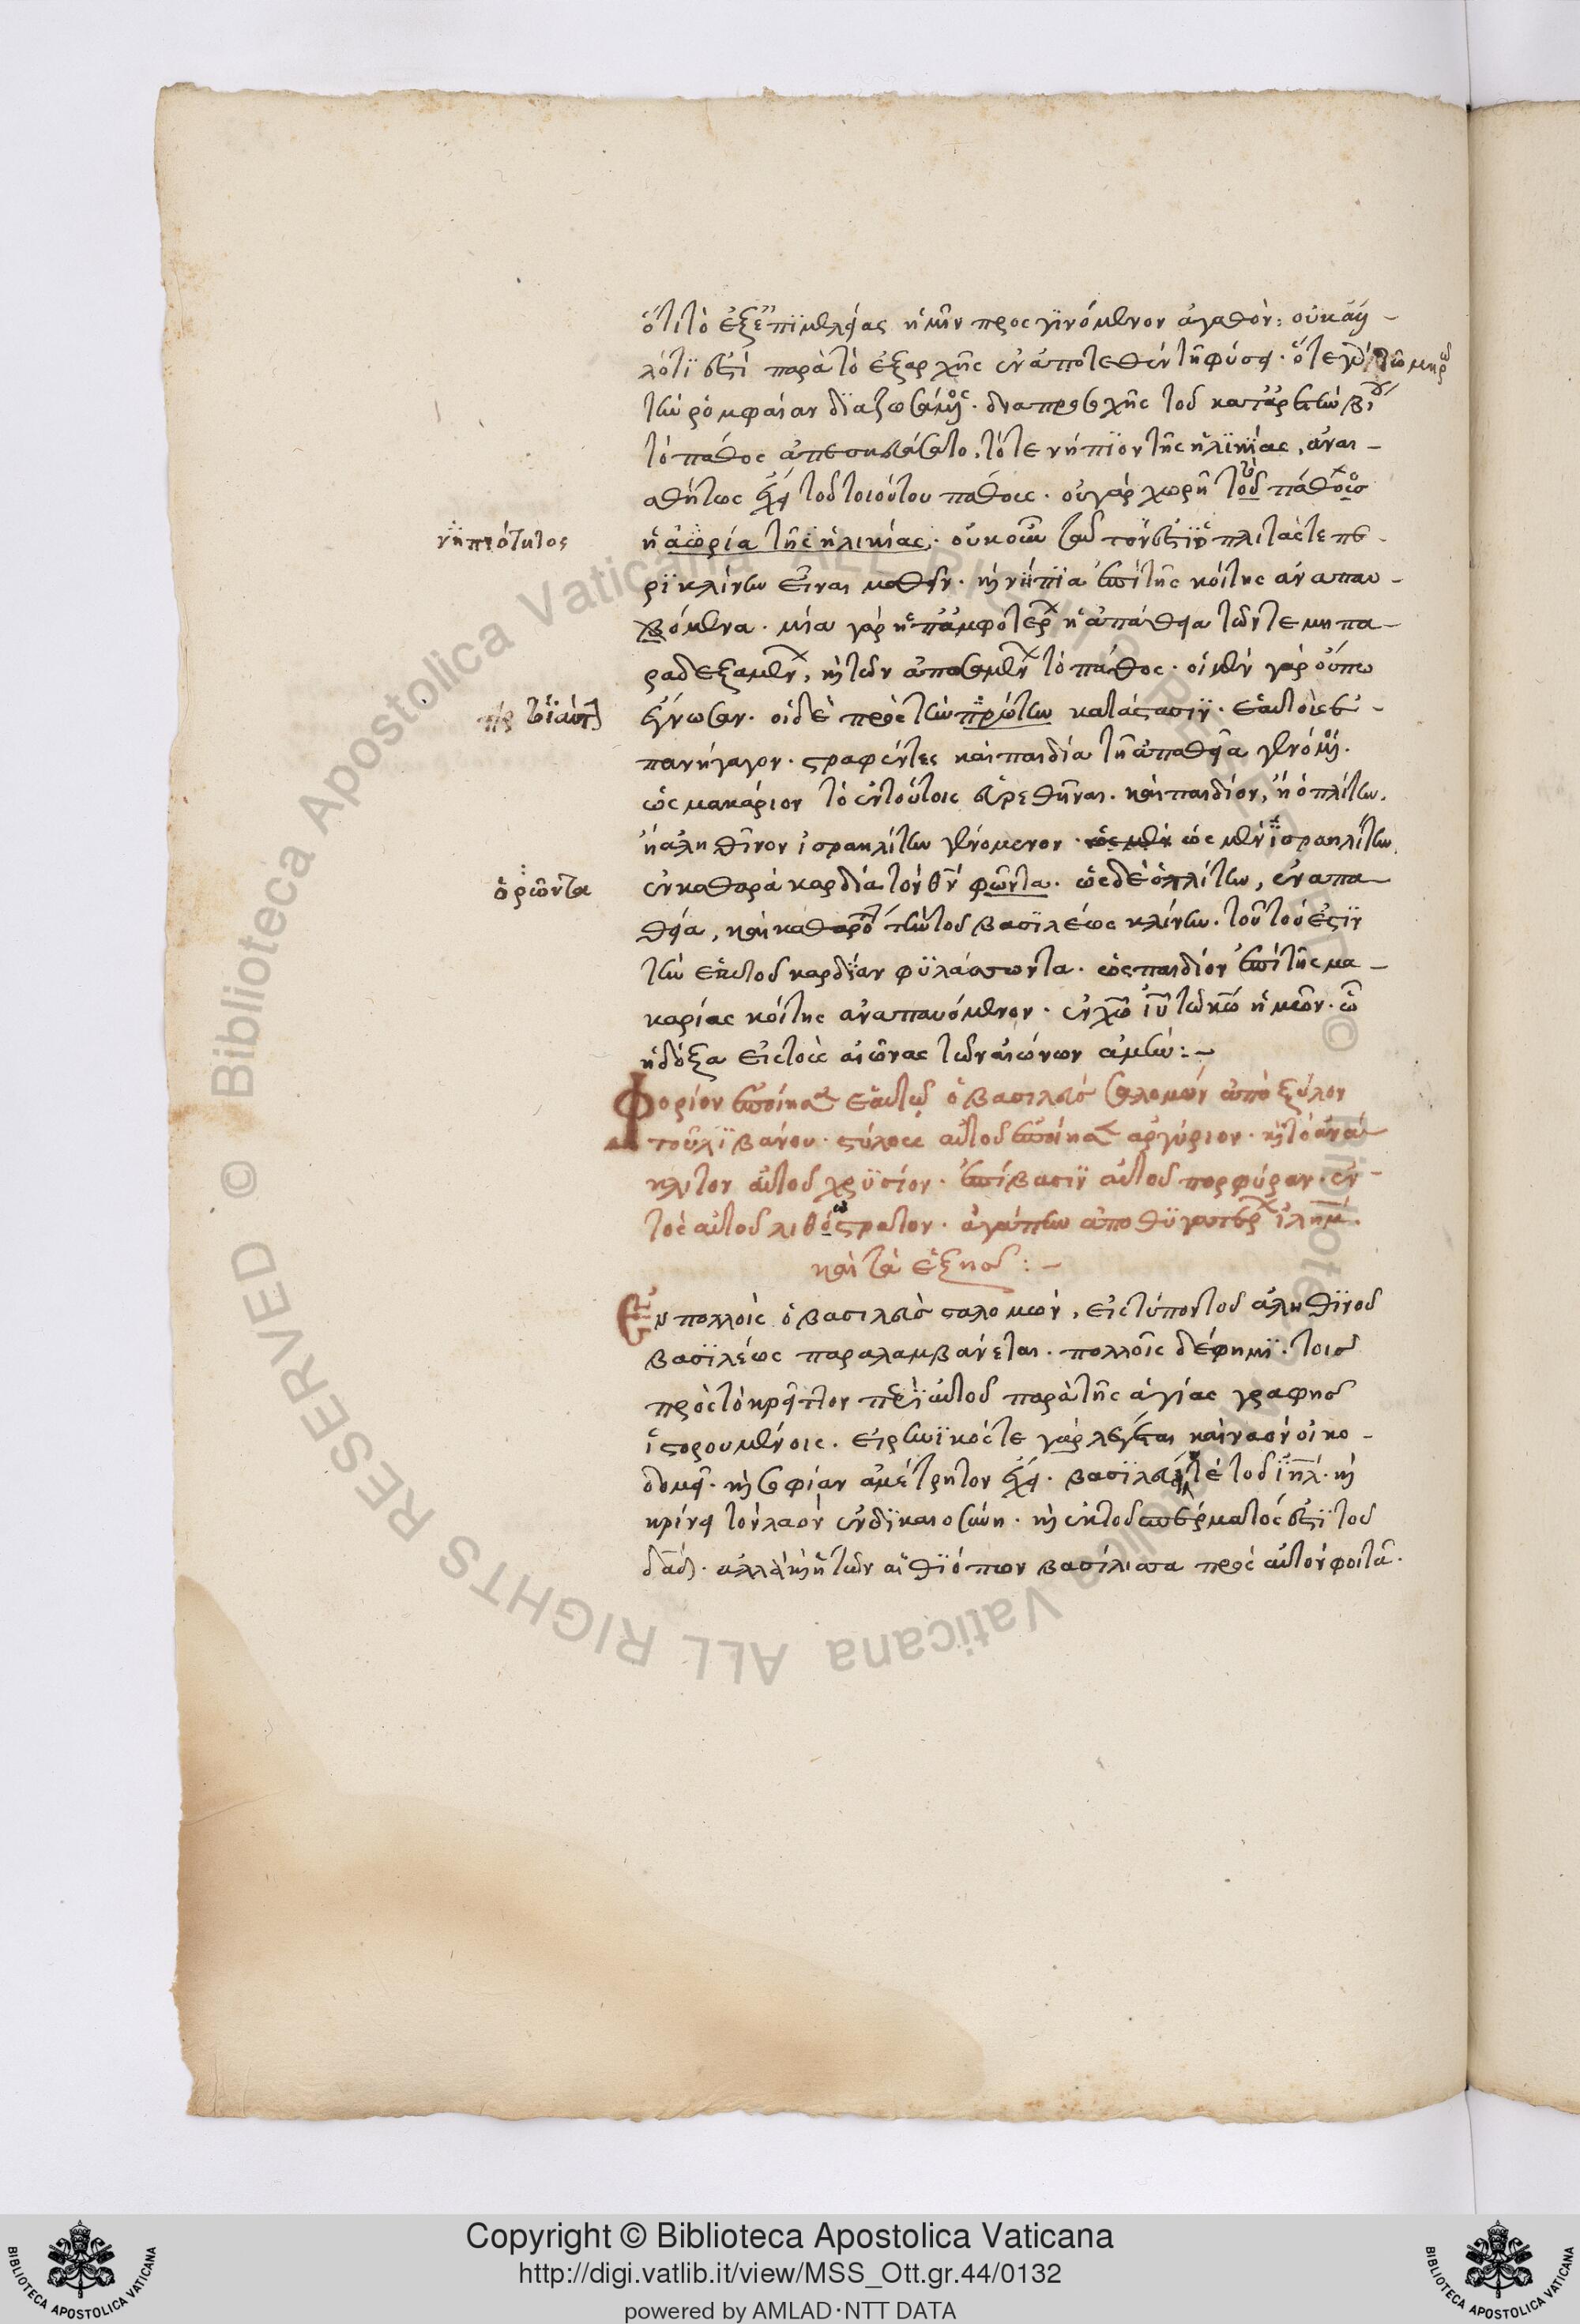 ὅτι τὸ ἐξ ἐπϊμελείας ἡμῖν προσγϊνόμενον ἀγαθὸν; οὐκ ἀλ-
λότϊόν ἐστὶ παρὰ τὸ ἐξαρχῆς ἐναποτεθὲν τῆ φύσει. ὅτε
τὴν ῥομφαίαν δϊαζωσάμενος. διαπροσοχῆς τοῦ
τὸ πάθος ἀπεσκευάσατο, τότε νήπϊον τῆς ἡλϊκϊας, ἀναι-
σθήτως ἔχει τοῦ τοιούτου πάθους. οὐ γὰρ χωρεῖ τοῦ πάθους
νηπιότητος
ἡ ἀωρία τῆς ἡλικίας. οὐκοῦν ταυτόν ἐστϊν ὁπλίτας τε πε-
ρϊ κλίνην εἶναι μαθεῖν. καὶ νήπϊα ἐπὶ τῆς κοίτης ἀναπαυ-
όμενα. μία γὰρ ἐπ' ἀμφοτέρων ἡ ἀπάθεια τῶν τε μὴ πα-
ραδεξαμένων, καὶ τῶν ἀπωσαμένων τὸ πάθος. οἱ μὲν γὰρ οὔπω
ἔγνωσαν. οἱ δὲ πρὸς τὴν πρώτην κατάστασϊν. ἑαυτοὺς ἐ-
πανήγαγον. στραφέντες καὶ παιδία τῆ ἀπαθεία γενόμενοι.
ὡς μακάριον τὸ ἐν τούτοις εὑρεθῆναι. καὶ παιδίον, ἢ ὁπλίτην,
ἢ ἀληθϊνὸν ἰσραηλίτην γενόμενον. ὡς μὲν ὡς μὲν ϊσραηλίτην,
ὁρῶντα
ἐν καθαρᾷ καρδία τὸν θν̅ φῶντα. ὡς δὲ ὁπλίτην, ἐν ἀπα-
θεία, καὶ καθαρότητι τὴν τοῦ βασϊλέως κλίνην. τουτουέστϊν
τὴν ἑαυτοῦ καρδΐαν φϋλάσσοντα. ὡς παιδίον ἐπὶ τῆς μα-
καρίας κοίτης ἀναπαυόμενον. ἐν χω̅ ιυ̅ τῶ κω̅ ἡμῶν. ὧ
ἡ δόξα εἰς τοὺς αἰῶνας τῶν αἰώνων ἀμήν:-
Φορίον ἐποίησεν ἑαυτῷ ὁ βασιλεὺς σαλομὼν ἀπὸ ξύλον
τοῦ λϊβάνου. στύλους αὐτοῦ ἐποίησεν ἀργύριον. καὶ τὸ ἀνά-
κλιτον αὐτοῦ χρϋσίον. ἐπίβασϊν αὐτοῦ πορφύραν. ἐν-
τὸς αὐτοῦ λιθόστρωτον. ἀγάπην ἀπὸ θϋγατέρων ἰλημ̅.
καὶ τὰ ἑξῆς:-
Ἐν πολλοῖς ὁ βασιλεὺς σαλομών, εἰς τύπον τοῦ ἀληθϊνοῦ
βασϊλέως παραλαμβάνεται. πολλοῖς δέ φημϊ. τοις
πρὸς τὸ κρεῖττον περὶ αὐτοῦ παρὰ τῆς ἁγίας γραφῆς
ἱστορουμένοις. εἰρηνϊκός τε γὰρ λέγεται καὶ ναὸν οἰκο-
δομεῖ. καὶ σοφίαν ἀμέτρητον ἔχει. βασϊλεύει τε τοῦ ιηλ̅. καὶ
κρίνει τὸν λαὸν ἐν δϊκαιοσύνη. καὶ ἐκ τοῦ σπέρματός ἐστϊ τοῦ
δαδ̅. ἀλλὰ καὶ ἡ τῶν αἰθϊόπων βασίλισσα πρὸς αὐτὸν φοιτᾶ.
Copyright © Biblioteca Apostolica Vaticana
http://digi.vatlib.it/view/MSS_Ott.gr.44/0132
powered by AMLAD·NTT DATA
BIBLIOTECA APOSTOLICA VATICANA
BIBLIOTECA APOSTOLICA VATICANA
© Biblioteca Apostolica Vaticana ALL RIGHTS RESERVED
© Biblioteca Apostolica Vaticana ALL RIGHTS RESERVED